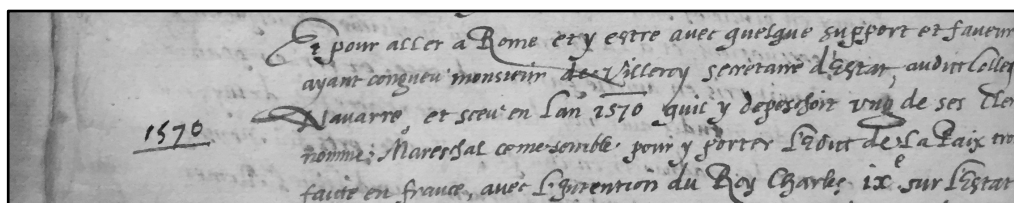 Et pour aller a Rome et y estre avec quelque support et faveur
ayant congneu monsieur de Villeroy secretaire d'Estat, audict Colleg
Navarre, et sceu en Lan 1570 quil y depeschoit ung de ses Cler
1570
nomme Mareschal come semble pour y porter L'Edict de La Paix tro
faicte en france, avec L'Intention du Roy Charles ixe sur L'Estat